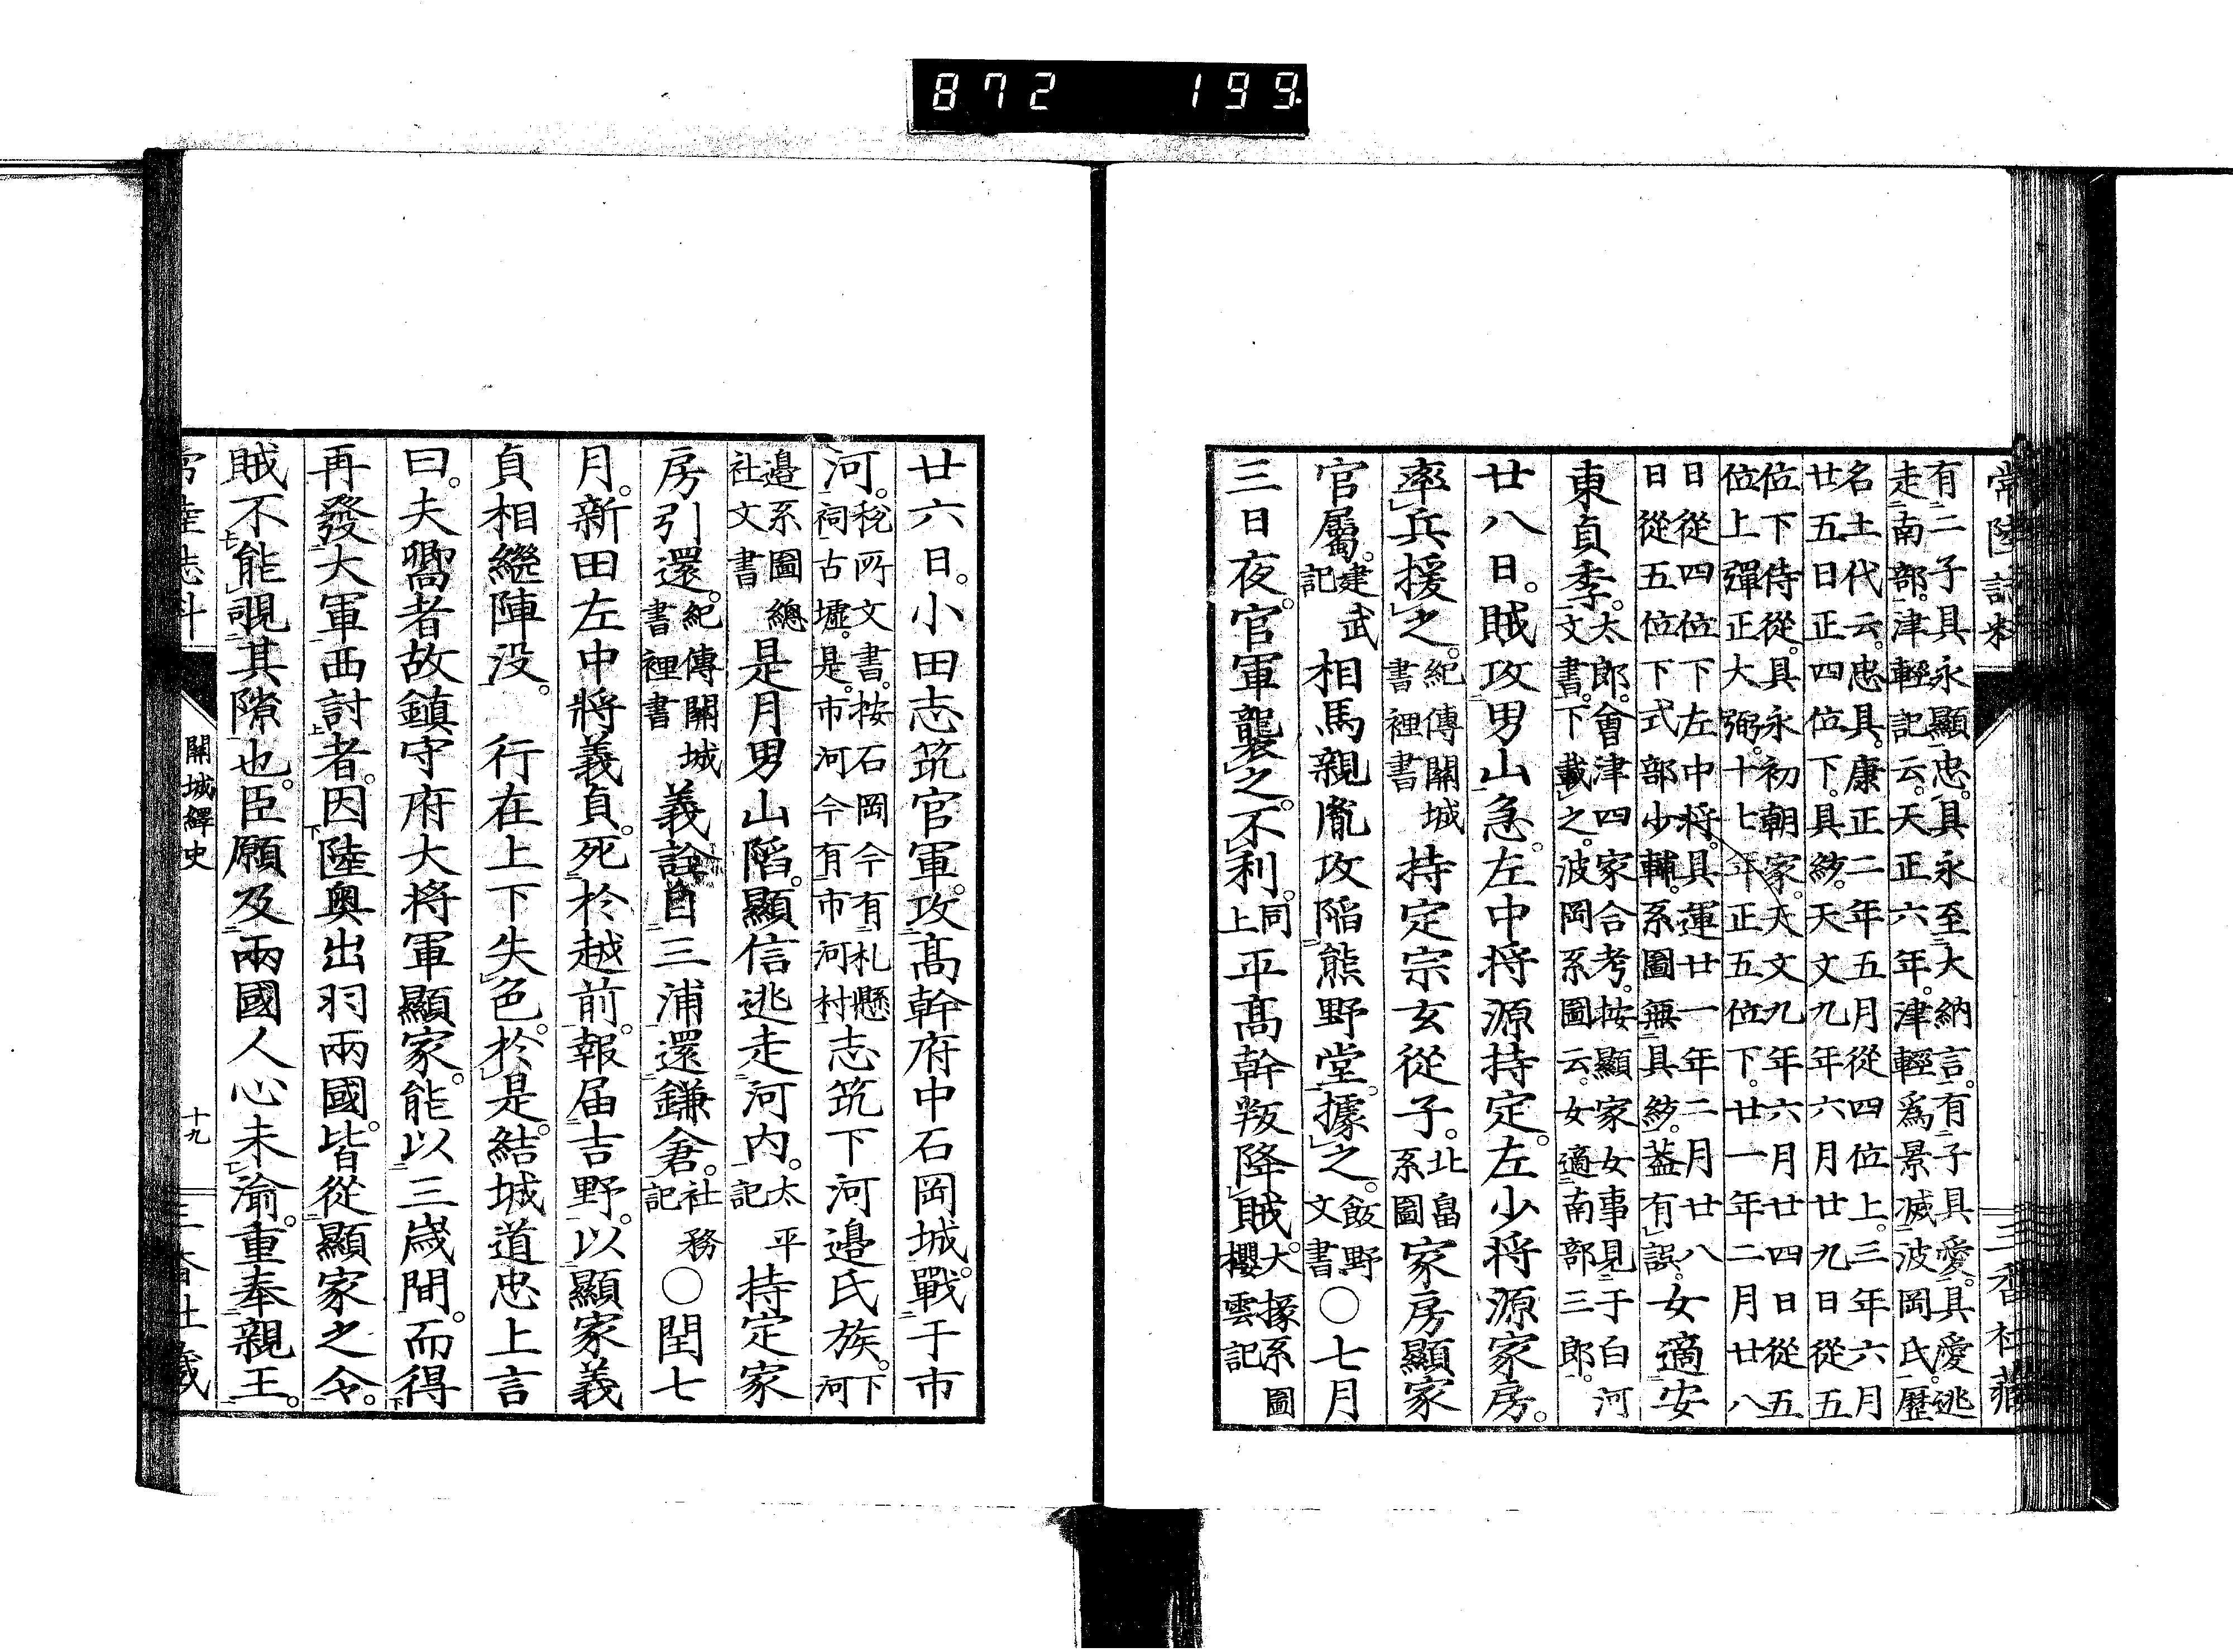 872 199
常陸誌料
三香社蔵
有二子具永顯忠。具永至大納言。有子具愛。具愛逃
走南部。津輕記云。天正六年。津輕爲景滅波岡氏。歷
名土代云。忠具。康正二年五月從四位上。三年六月
廿五日正四位下。具統。天文九年六月廿九日從五
位下侍從。具永初朝家。天文九年六月廿四日從五
位上彈正大弼。十七年正五位下。廿一年二月廿八
日從四位下左中将。具運廿一年二月廿八
日從五位下式部少輔。系圖無具統。葢有誤。女適安
東貞季。太郎。會津四家合考。按顯家女事見于白河
文書。下載之。波岡系圖云。女適南部三郎。
廿八日。賊攻男山急。左中将源持定。左少将源家房。
率兵援之。紀傳關城
書裡書持定宗玄從子。北畠
系圖家房顯家
官屬。建武
記相馬親胤攻陷熊野堂。據之。飯野
文書○七月
三日夜。官軍襲之。不利。同
上平髙幹叛降賊。大掾系圖
櫻雲記
廿六日。小田志筑官軍。攻髙幹府中石岡城。戰于市
河。税所文書。按石岡今有札懸
祠古墟。是。市河今有市河村志筑下河邉氏族。下河
邉系圖總
社文書是月男山陷。顯信逃走河内。太平
記持定家
房引還。紀傳關城
書裡書義詮自三浦還鎌倉。社務
記○閏七
月。新田左中将義貞。死於越前。報届吉野。以顯家義
貞相繼陣没。行在上下失色。於是。結城道忠上言
曰。夫曏者故鎮守府大将軍顯家。能以三歳間。而得
再發大軍西討者。因陸奥出羽兩國。皆從顯家之令。
賊不能覗其隙也。臣願及兩國人心未渝。重奉親王。
關城繹史
十九